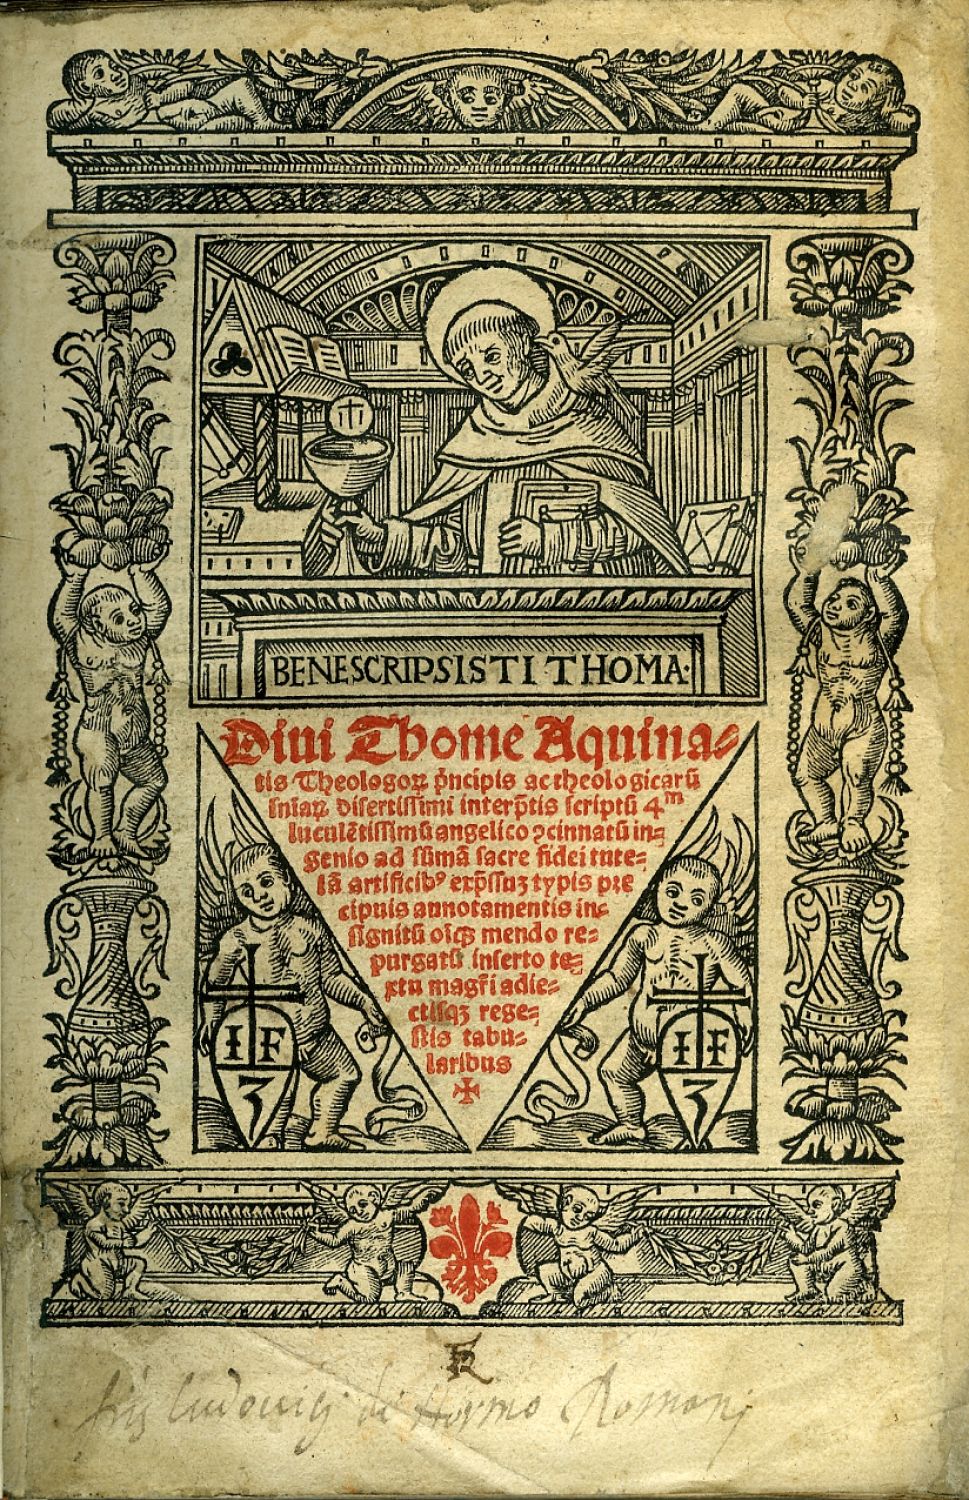 BENE SCRIPSISTI THOMA·
Diui Thome Aquina⸗
tis Theologoꝝ p̄ncipis ac theologicarū
sn̄iaꝝ disertissimi interp̄tis scriptū 4ᵐ
luculētissimū angelico ꝯcinnatū in⸗
genio ad sūmā sacre fidei tute⸗
lā artificibꝰ exp̄ssuꝫ typis pre
cipuis annotamentis in⸗
signitū oīqꝫ mendo re⸗
purgatū inserto te⸗
xtu magr̄i adie⸗
ctisqꝫ rege⸗
stis tabu⸗
laribus
I F
3
I F
3
ludouicj de Romanj